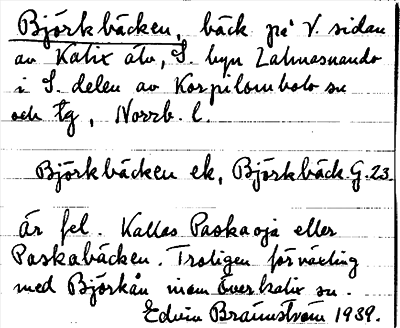 Björkbäcken, bäck på V. sidan
av Kalix älv, S. byn Lahnasuando
i S. delen av Korpilombolo sn
och tg, Norrb. l.
Björkbäcken ek, Björkbäck G. 23.
är fel. Kallas Paskaoja eller
Paskabäcken. Troligen förväxling
med Björkån inom Överkalix sn.
Edvin Brännström 1939.